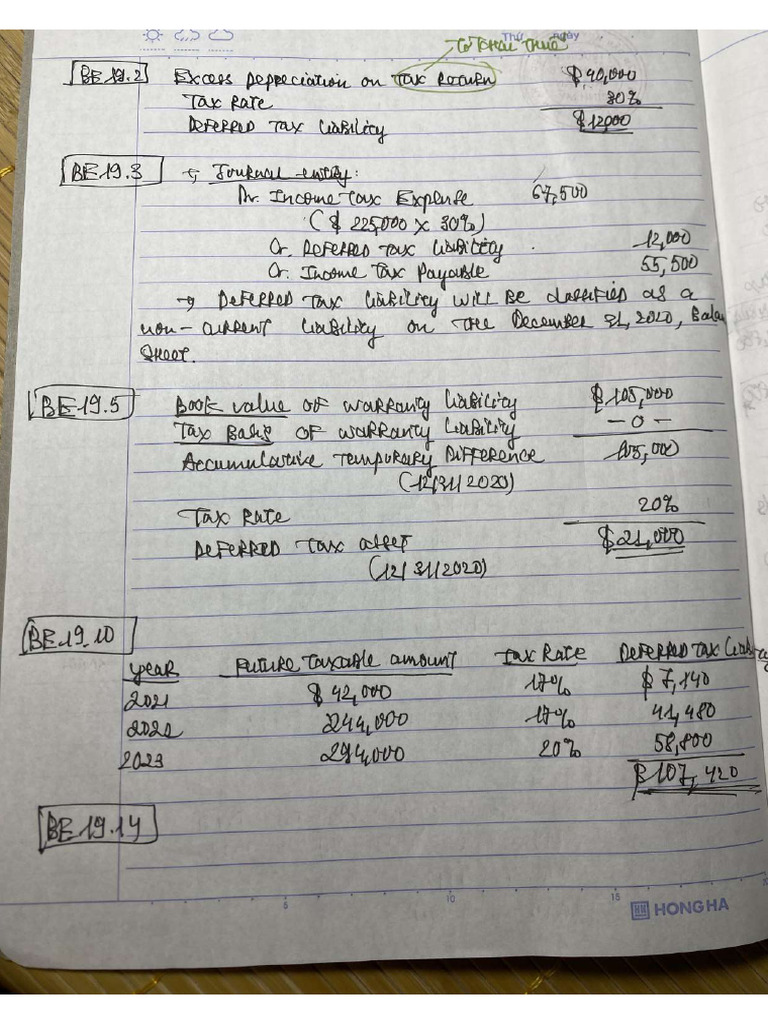 Thứ ngày
Tờ khai thuế
BE 19.2 Excess Depreciation on Tax Return $40,000
Tax Rate 30%
Deferred Tax Liability $12000
BE 19.3 Journal entry:
Dr. Income Tax Expense 67,500
($ 225,000 x 30%)
Cr. Deferred Tax Liability 12,000
Cr. Income Tax Payable 55,500
→ Deferred Tax Liability will be classified as a
non-current liability on the December 31, 2020, Balan
Sheet.
BE 19.5 Book value of warranty liability $105,000
Tax Basis of warranty liability -0-
Accumulative Temporary Difference 105,000
(12/31/2020)
Tax Rate 20%
Deferred Tax asset $21,000
(12/31/2020)
BE 19.10
year Future Taxable amount Tax Rate Deferred Tax Liability
2021 $42,000 17% $7,140
2022 244,000 17% 41,480
2023 294,000 20% 58,800
$107,420
BE 19.14
5 10 15
HH HONG HA